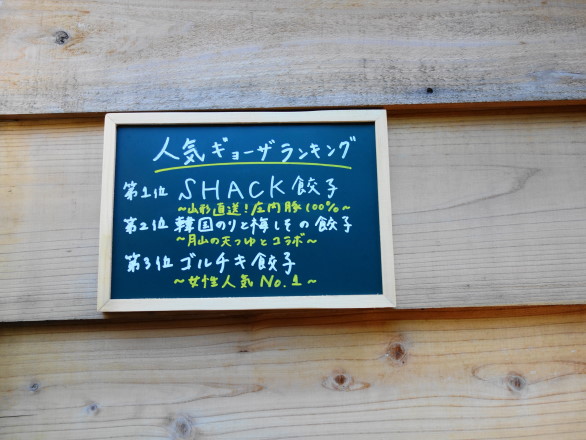 人気ギョーザランキング
第1位 SHACK餃子
~山形直送!庄内豚100%~
第2位 韓国のりと梅しその餃子
~月山の天つゆとコラボ~
第3位 ゴルチキ餃子
~女性人気No.1~